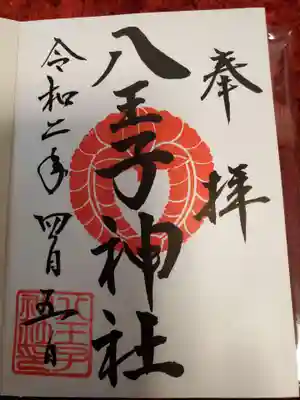 奉拝
八王子神社
令和二年四月五日
八王子神社印